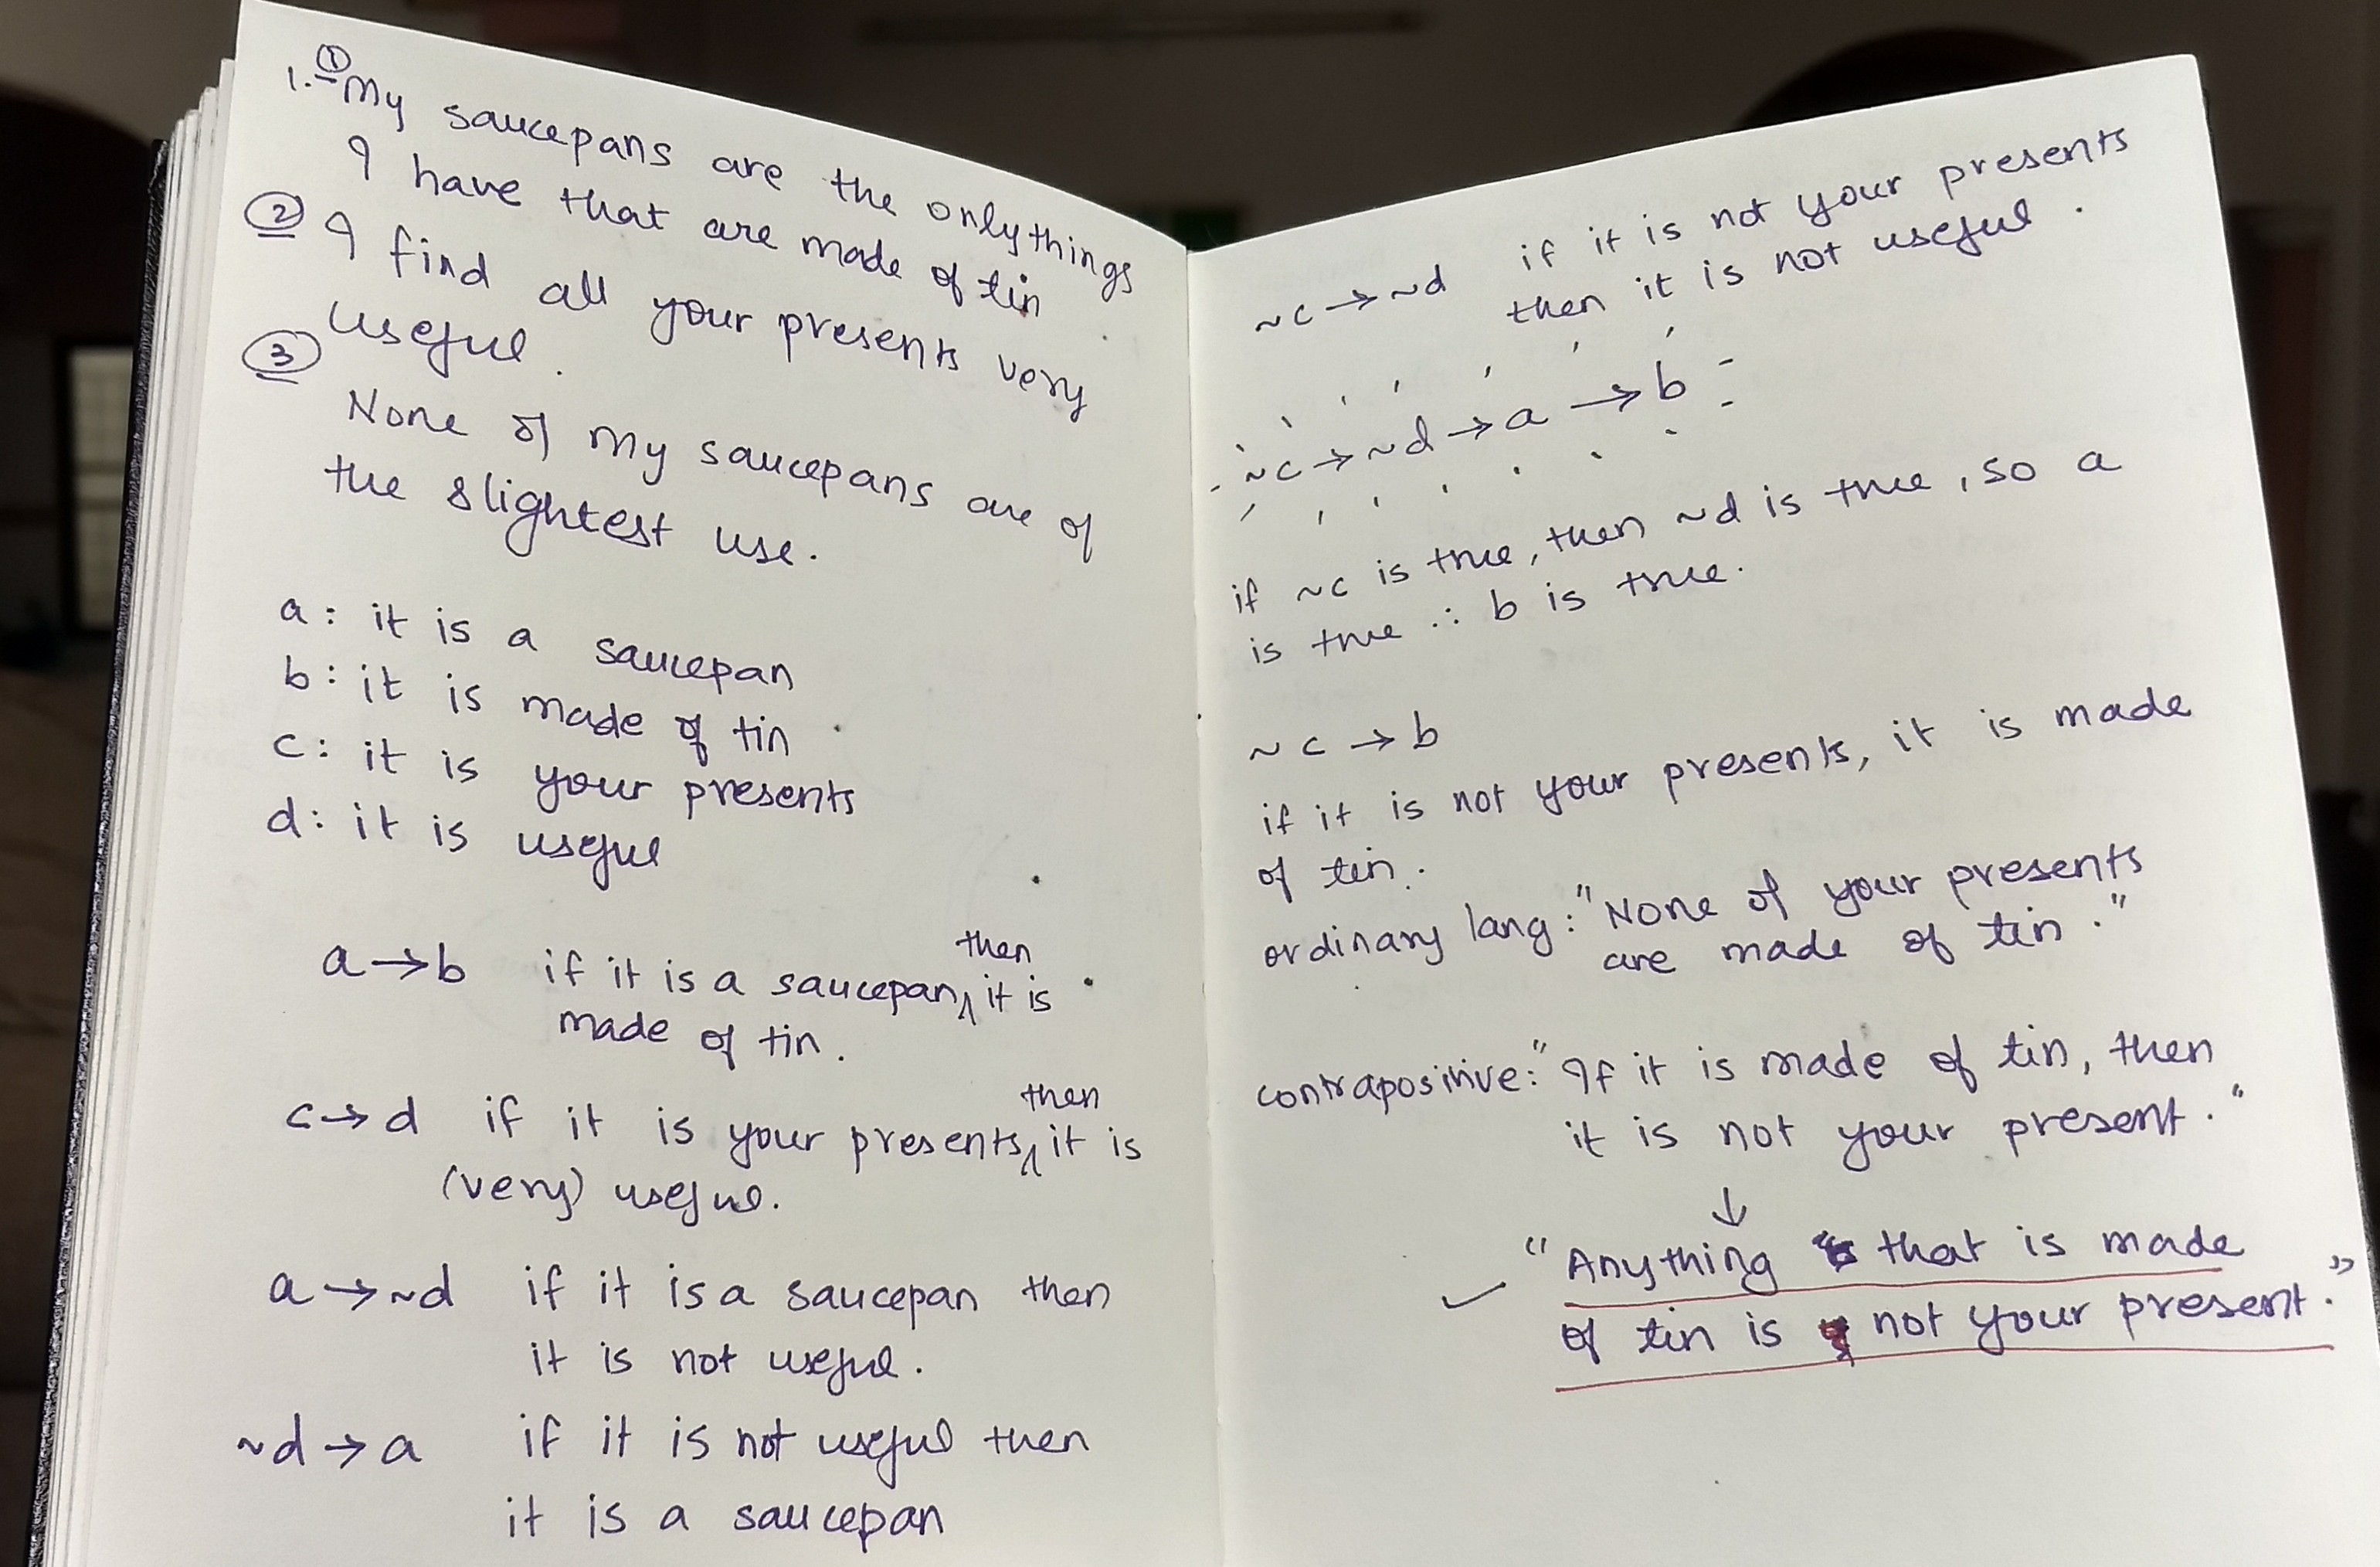 1. ① My saucepans are the only things
I have that are made of tin.
② I find all your presents very
useful.
③ None of my saucepans are of
the slightest use.
a: it is a saucepan
b: it is made of tin
c: it is your presents
d: it is useful
a → b if it is a saucepan, then it is
made of tin.
c → d if it is your presents, then it is
(very) useful.
a → ~d if it is a saucepan then
it is not useful.
~d → a if it is not useful then
it is a saucepan
~c → ~d if it is not your presents
then it is not useful.
~c → ~d → a → b
if ~c is true, then ~d is true, so a
is true ∴ b is true.
~c → b
if it is not your presents, it is made
of tin.
ordinary lang: "None of your presents
are made of tin."
contrapositive: "If it is made of tin, then
it is not your present."
↓
"Anything that is made
of tin is not your present."